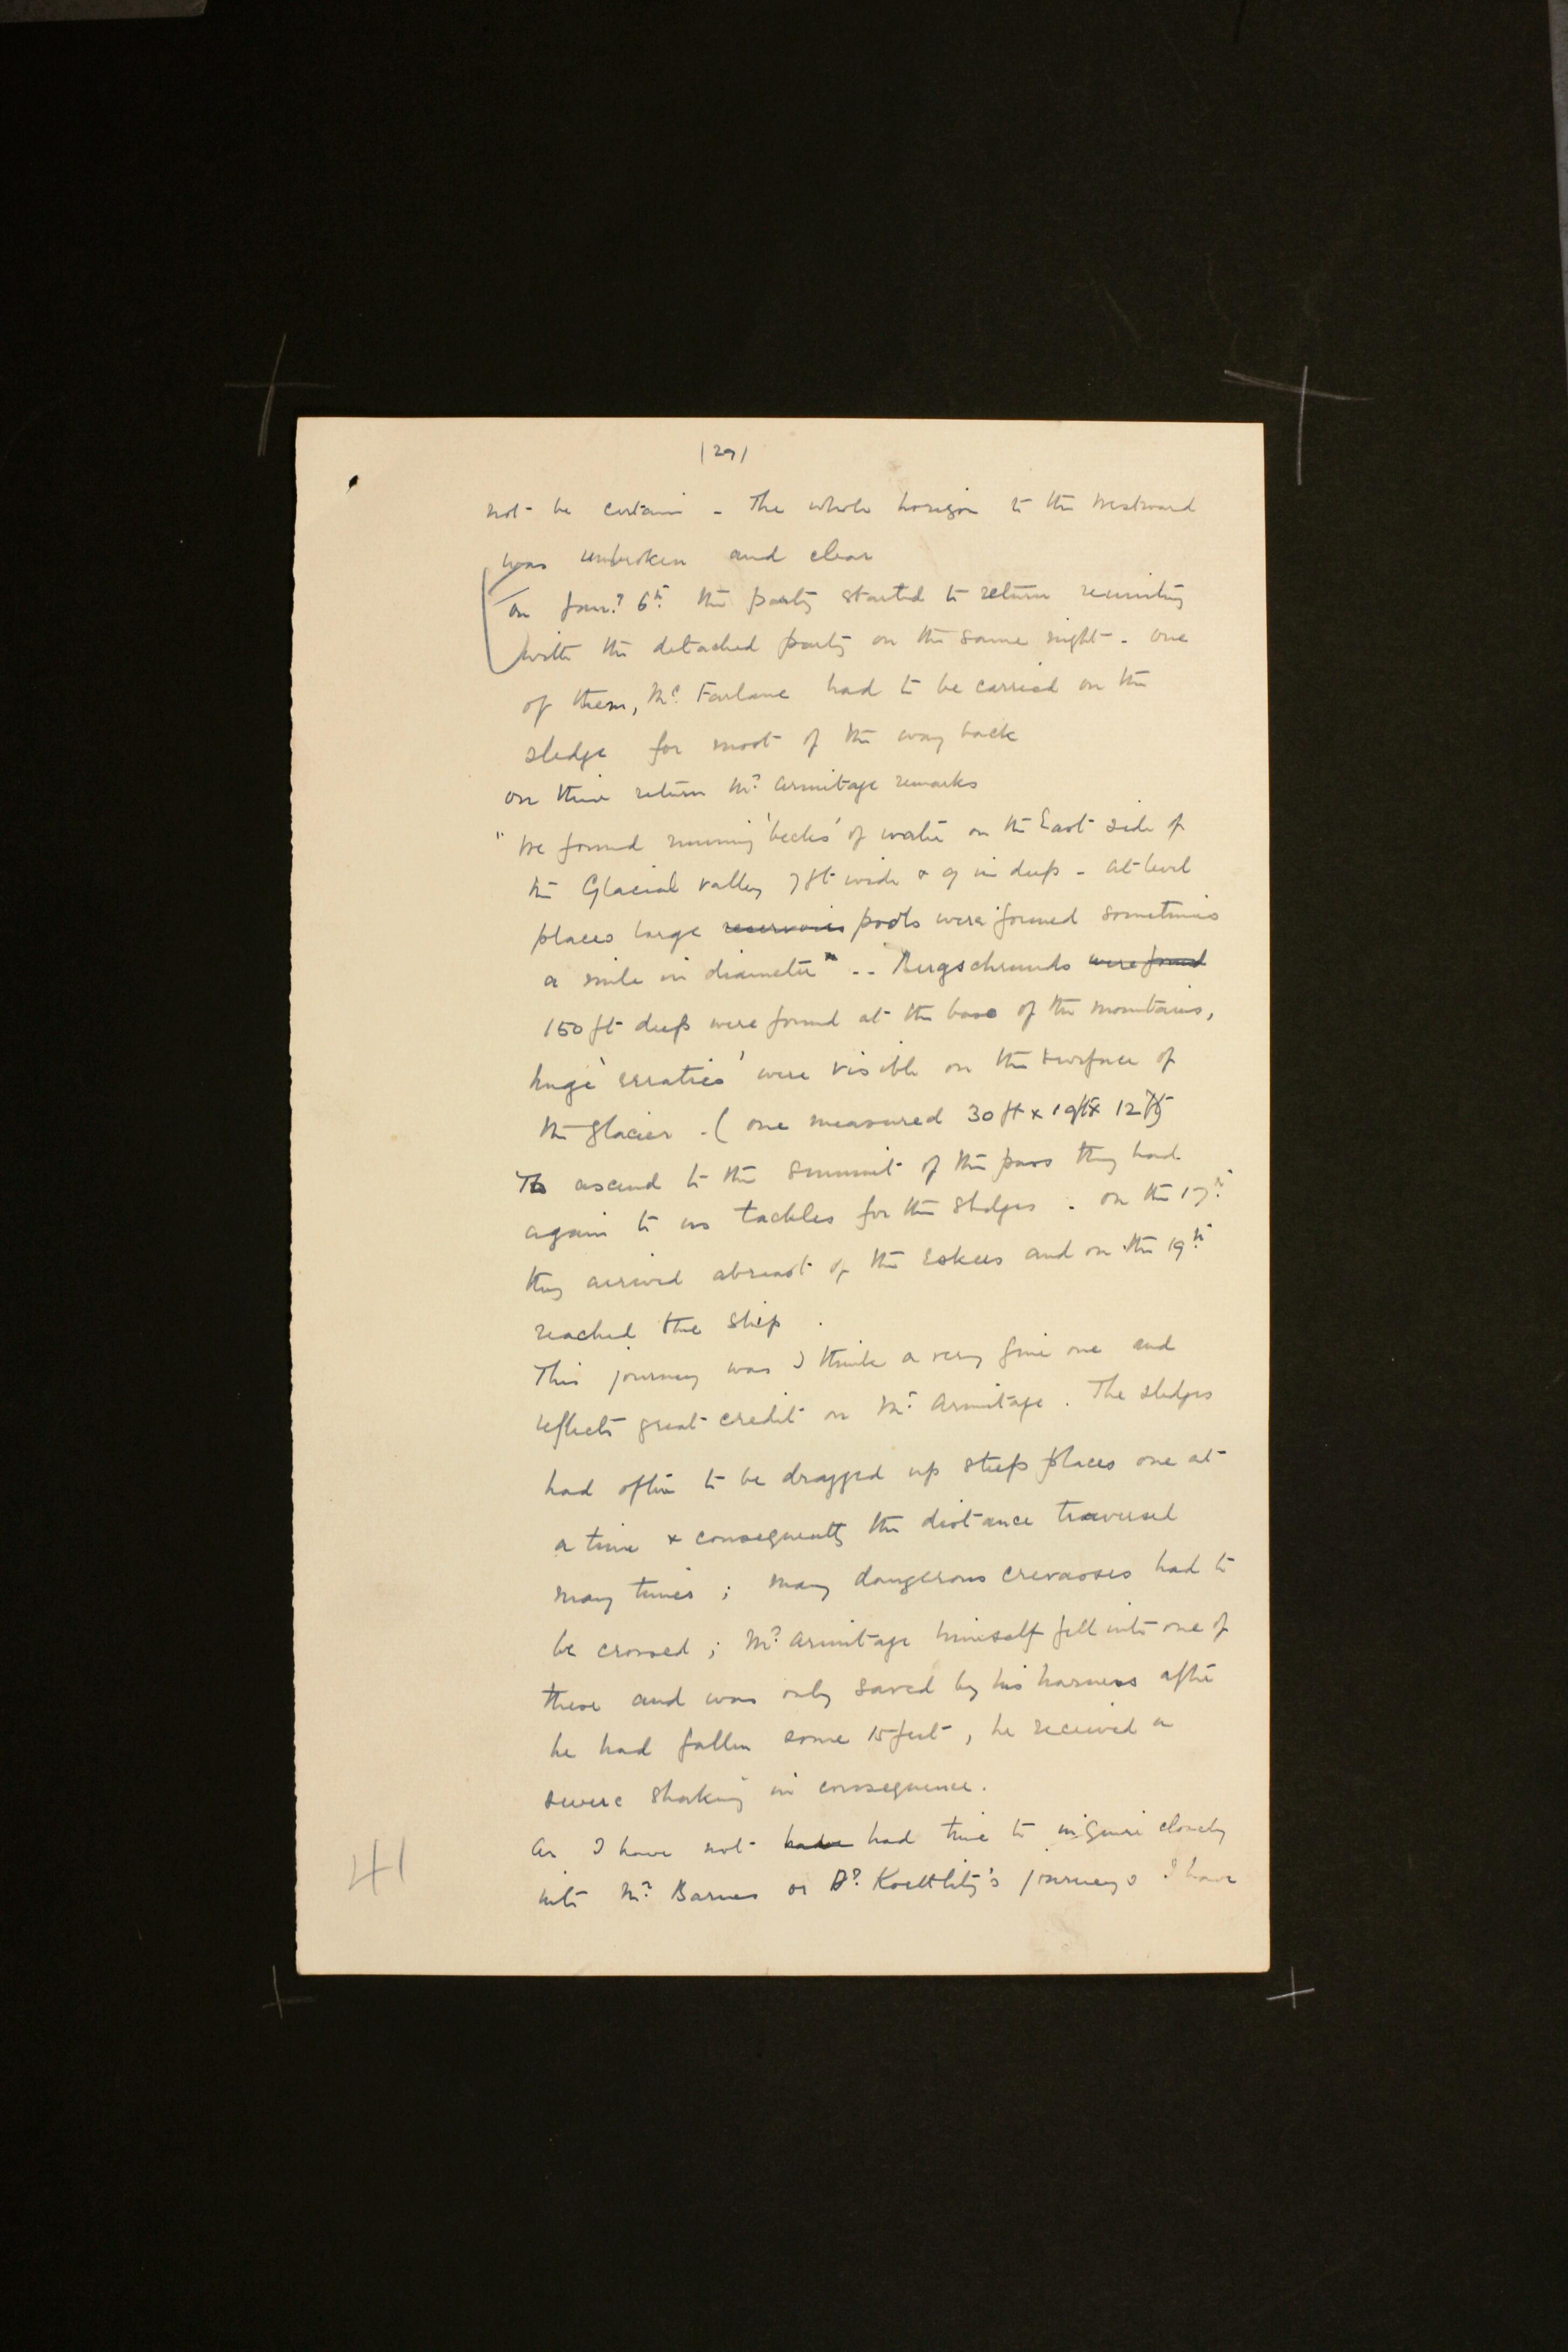 (29)
not be certain - The whole horizon to the westward
was unbroken and clear
on Jany 6th the party started to return reuniting
with the detached party on the same night - one
of them, Mc Farlane had to be carried on the
sledge for most of the way back
on their return Mr Armitage remarks
"We found running 'becks' of water on the East side of
the Glacial valley 7 ft wide & 9 in deep - at level
places large reservoirs pools were formed sometimes
a mile in diameter" -- Bergschrunds were found
150 ft deep were found at the base of the mountains,
huge 'erratics' were visible on the surface of
the glacier - (one measured 30 ft x 19 ft x 12 ft)
To ascend to the summit of the pass they had
again to use tackles for the sledges . on the 17th
they arrived abreast of the Eskers and on the 19th
reached the ship .
This journey was I think a very fine one and
reflects great credit on Mr Armitage . The sledges
had often to be dragged up steep places one at
a time & consequently the distance traversed
many times ; many dangerous crevasses had to
be crossed ; Mr Armitage himself fell into one of
these and was only saved by his harness after
he had fallen some 15 feet , he received a
severe shaking in consequence .
As I have not have had time to inquire closely
into Mr Barnes or Dr Koettlitz's journeys I have
41